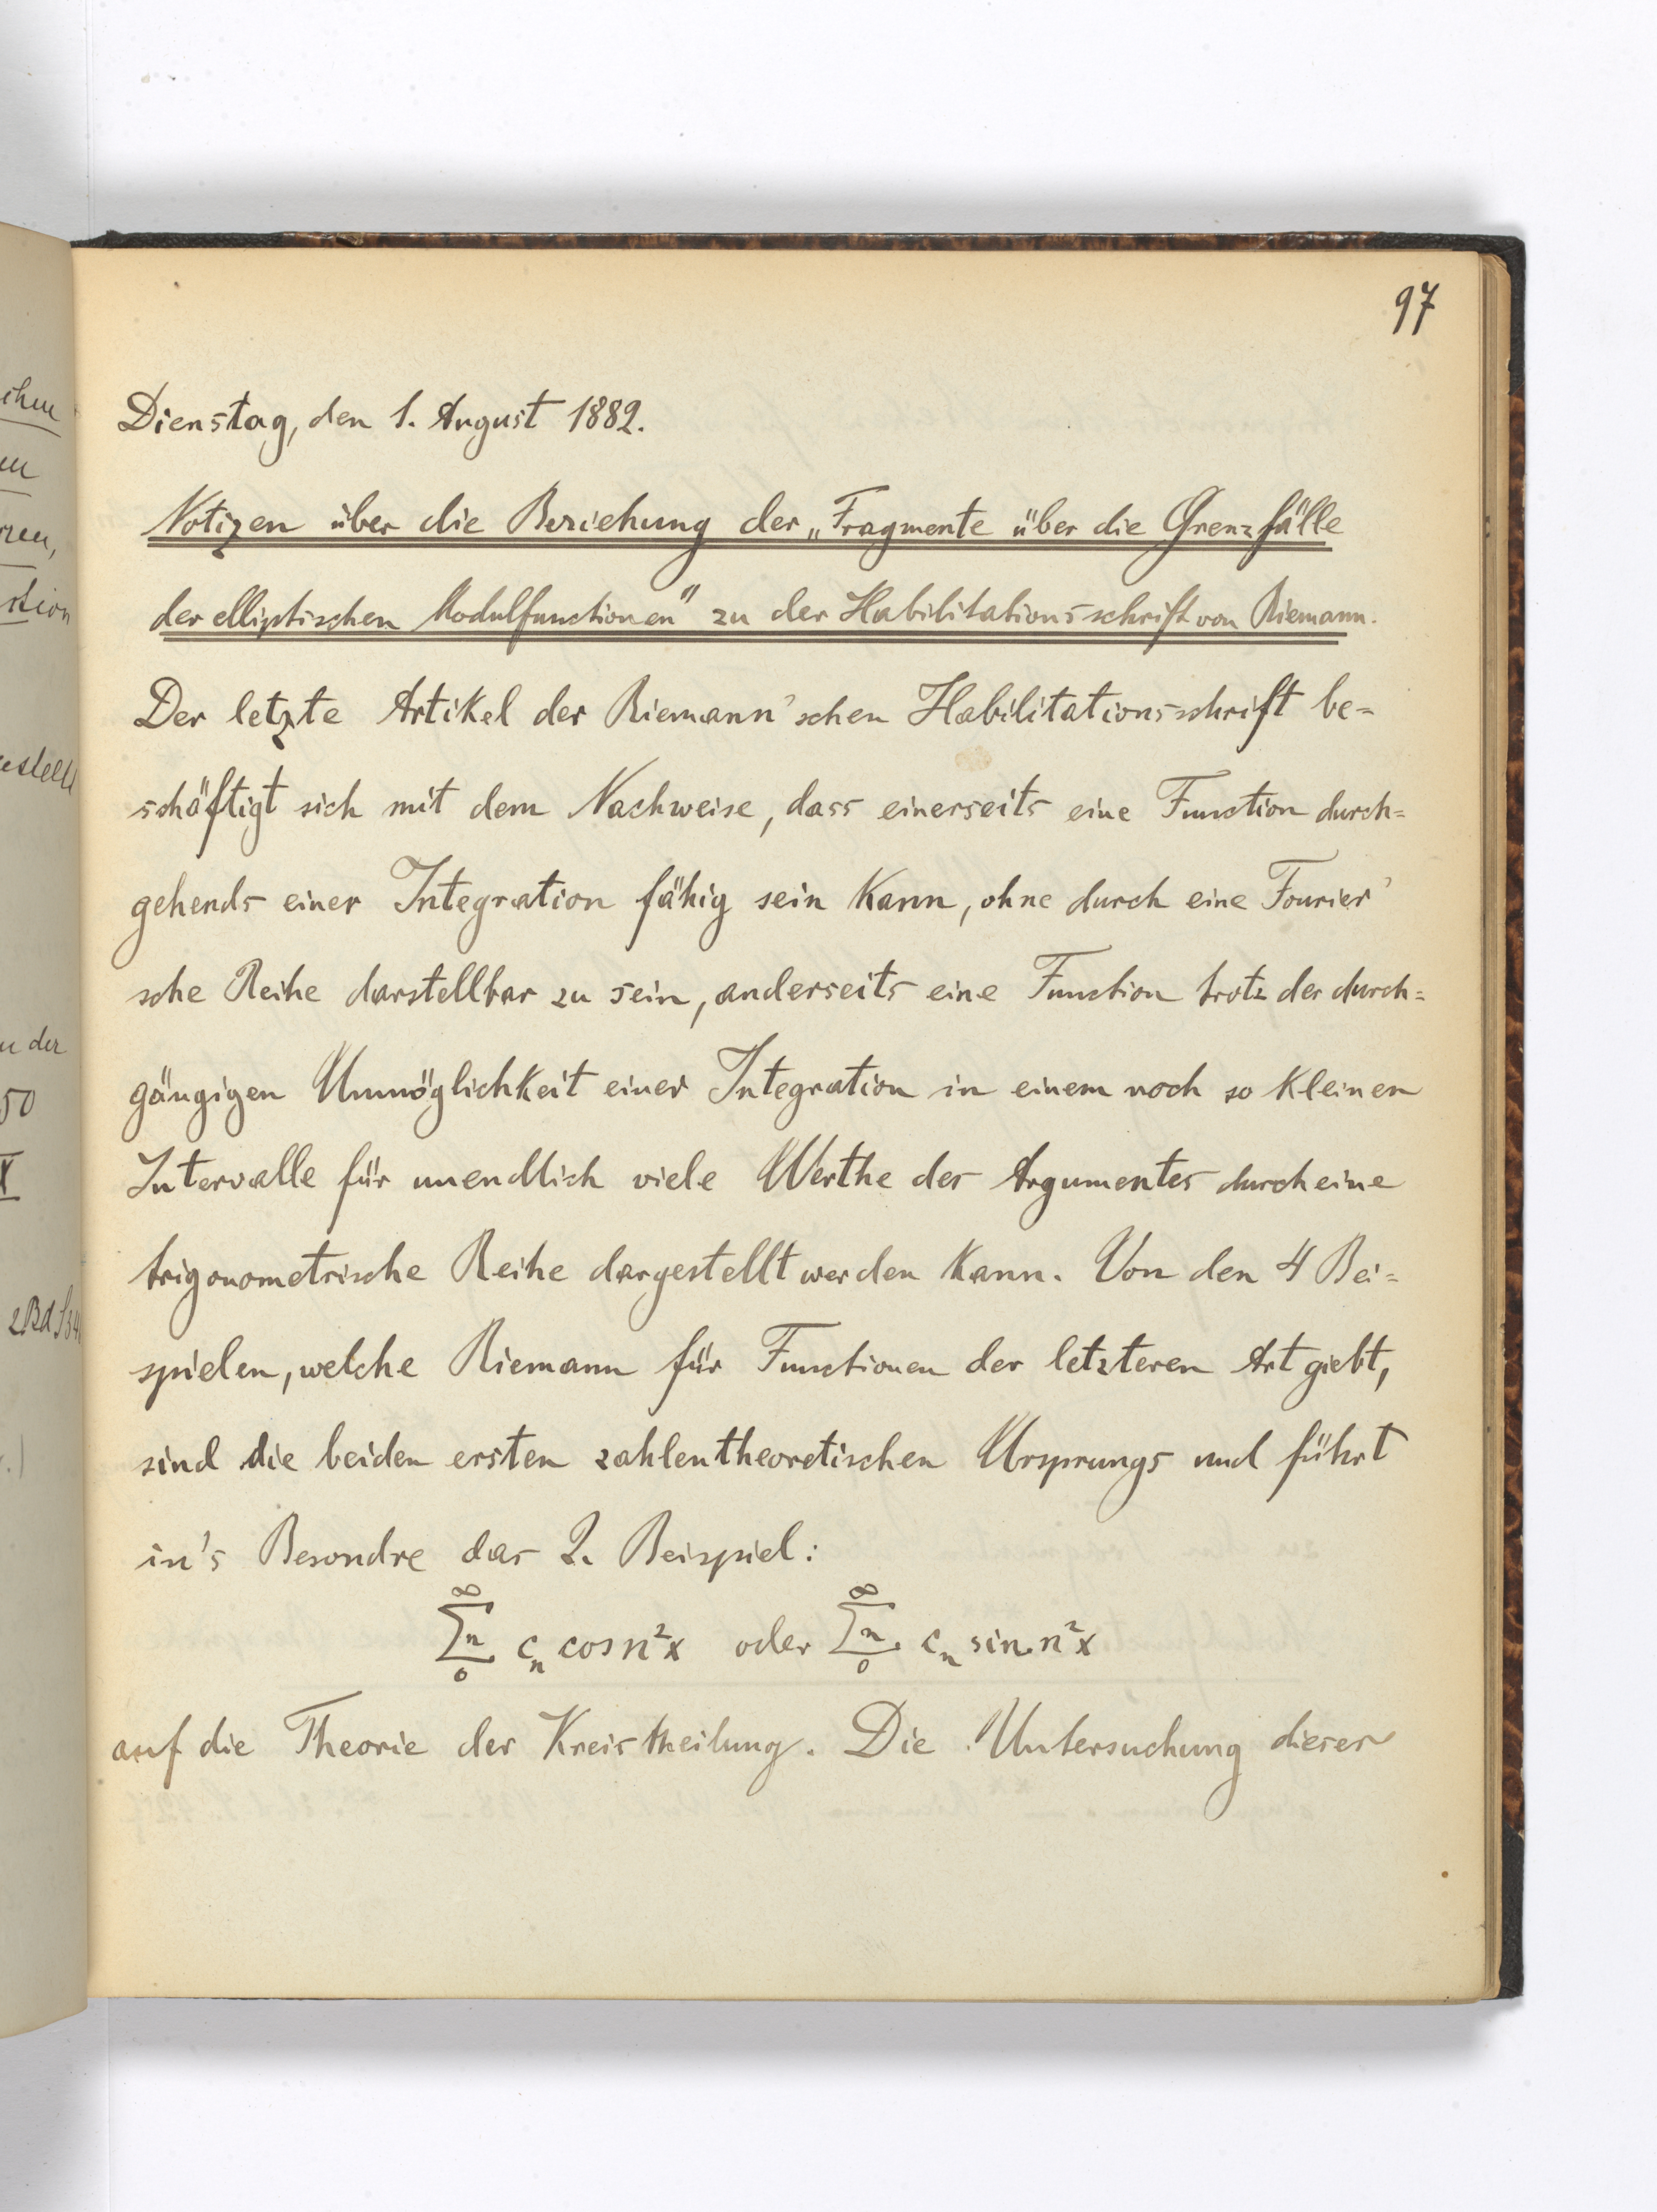 97
Dienstag, den 1. August 1882.
Notizen über die Beziehung der „Fragmente über die Grenzfälle
der elliptischen Modulfunctionen" zu der Habilitationsschrift von Riemann.
Der letzte Artikel der Riemann'schen Habilitationsschrift be=
schäftigt sich mit dem Nachweise, dass einerseits eine Function durch=
gehends einer Integration fähig sein kann, ohne durch eine Fourier'
sche Reihe darstellbar zu sein, anderseits eine Function trotz der durch=
gängigen Unmöglichkeit einer Integration in einem noch so kleinen
Intervalle für unendlich viele Werthe des Argumentes durch eine
trigonometrische Reihe dargestellt werden kann. Von den 4 Bei=
spielen, welche Riemann für Functionen der letzteren Art giebt,
sind die beiden ersten zahlentheoretischen Ursprungs und führt
in's Besondre das 2. Beispiel:
∞∑n0 cₙ cos n²x oder ∞∑n0 cₙ sin n²x
auf die Theorie der Kreistheilung. Die Untersuchung dieser